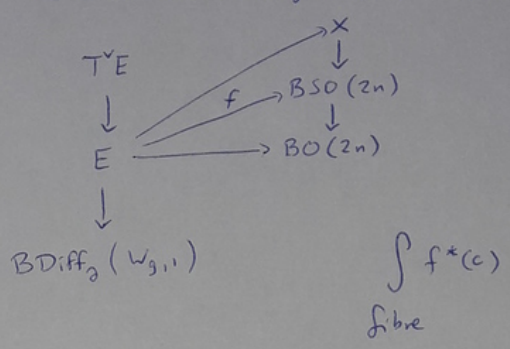 X
TᵛE
f
BSO(2n)
E
BO(2n)
BDiff∂(Wg,1)
∫ f*(c)
fibre